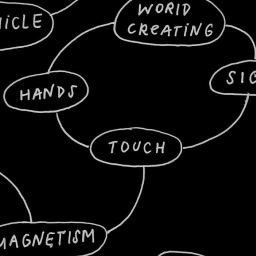 WORLD
CREATING
HANDS
TOUCH
MAGNETISM